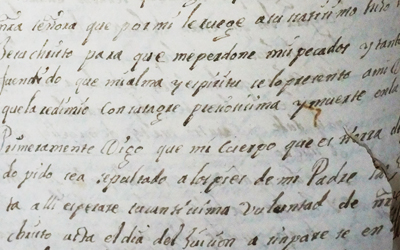 nra señora que por mi le ruege a su santisimo hijo
Jesuchristo para que me perdone mis pecados y tanto
que mi alma y espiritu se lo presento a mi
que la redimio con su sagre presiosima y muerte en la
Primeramente Digo que mi Cuerpo que es tierra de
do pido sea sepultado a los pies de mi Padre
ta alli esperare su santissima voluntad de nro
christo asta el dia del juision a unirse te en